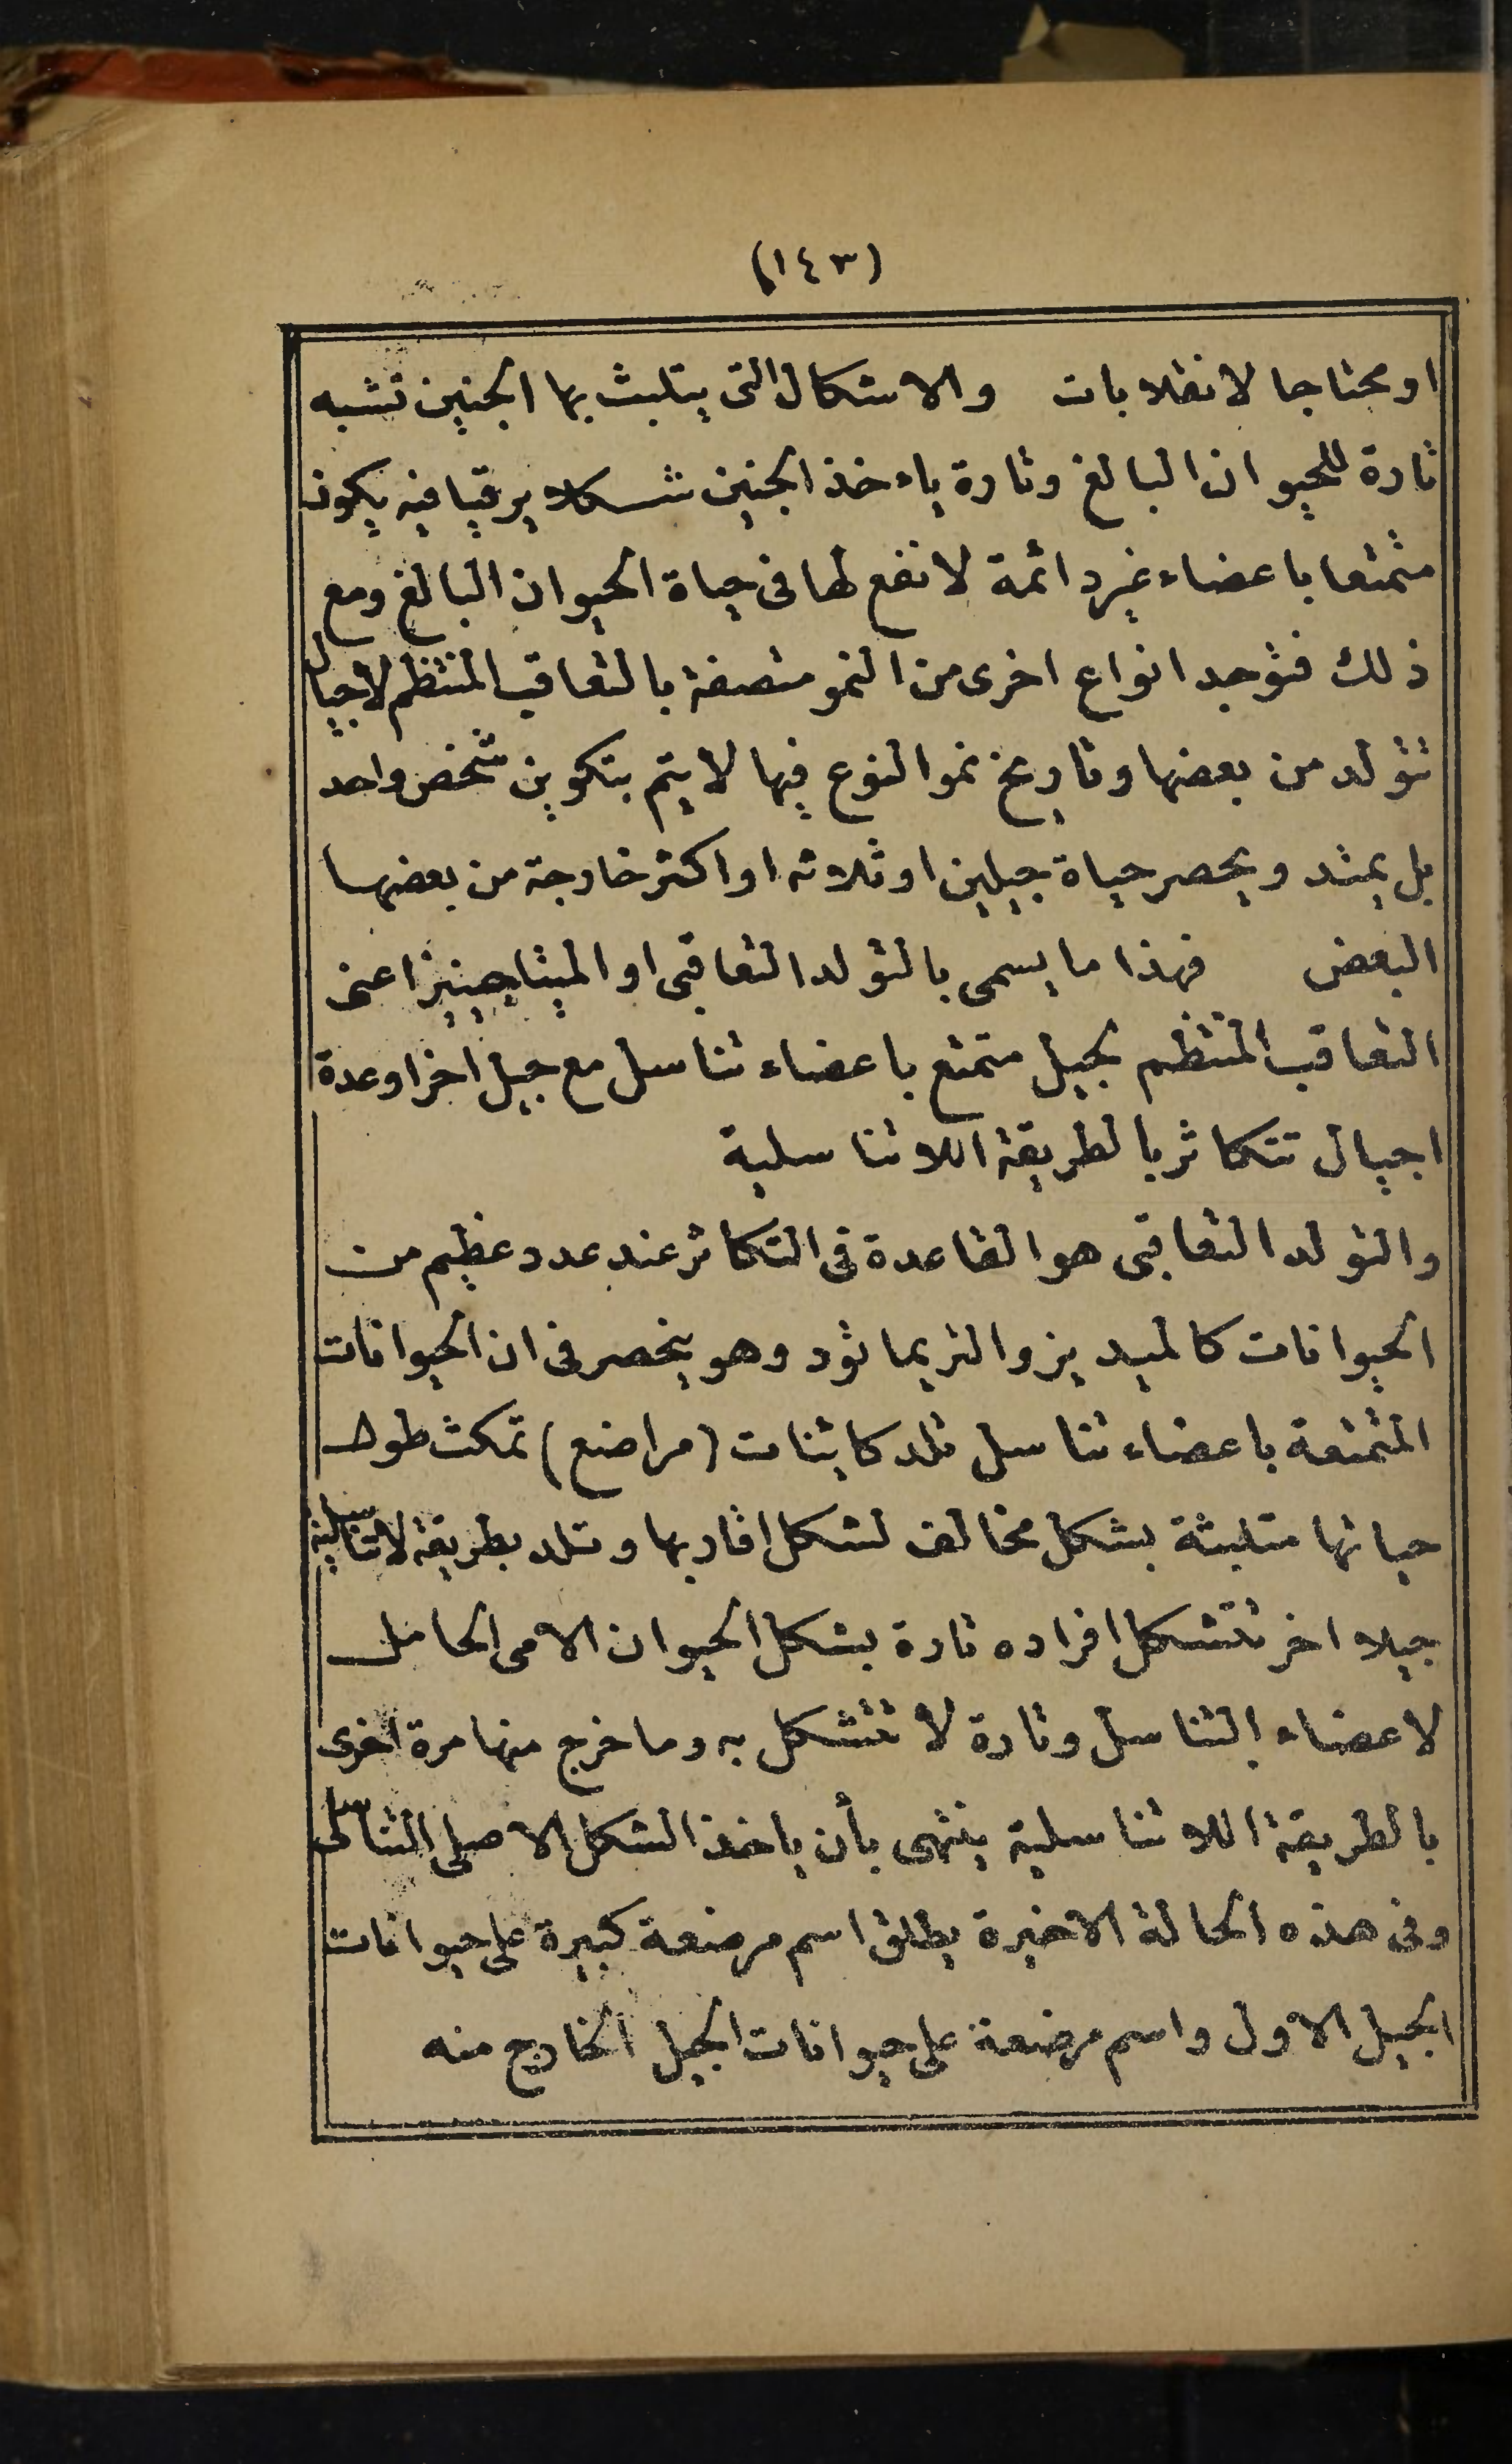 (١٤٣)
او محتاجا لانقلابات والاشكال التى يتلبث بها الجنين تشبه
تارة للحيوان البالغ وتارة ياءخذ الجنين شكلا يرقيا فيه يكون
متمتعا باعضاء غير دائمة لا نفع لها فى حياة الحيوان البالغ ومع
ذلك فتوجد انواع اخرى من النمو متصفة بالتعاقب المنتظم لاجيال
تتولد من بعضها وتاريخ نمو النوع فيها لا يتم بتكوين شخص واحد
بل يمتد ويحصر حياة جيلين او ثلاثه او اكثر خارجة من بعضها
البعض فهذا ما يسمى بالتولد التعاقبى او الميتاجينيز اعنى
التعاقب المنتظم لجيل متمتع باعضاء تناسل مع جيل اخر او عدة
اجيال تتكاثر بالطريقة اللاتناسلية
والتولد التعاقبى هو القاعدة فى التكاثر عند عدد عظيم من
الحيوانات كالميديز والتريماتود وهو ينحصر فى ان الحيوانات
المتمتعة باعضاء تناسل تلد كائنات (مراضع) تمكث طول
حياتها متلبثة بشكل مخالف لشكل اقاربها وتلد بطريقة لاتناسلية
جيلا اخر تتشكل افراده تارة بشكل الحيوان الامى الحامل
لاعضاء التناسل وتارة لا تتشكل به وما خرج منها مرة اخرى
بالطريقة اللاتناسلية ينتهى بأن ياخذ الشكل الاصلى التناسلى
وفى هذه الحالة الاخيرة يطلق اسم مرضعة كبيرة على حيوانات
الجيل الاول واسم مرضعة على حيوانات الجيل الخارج منه